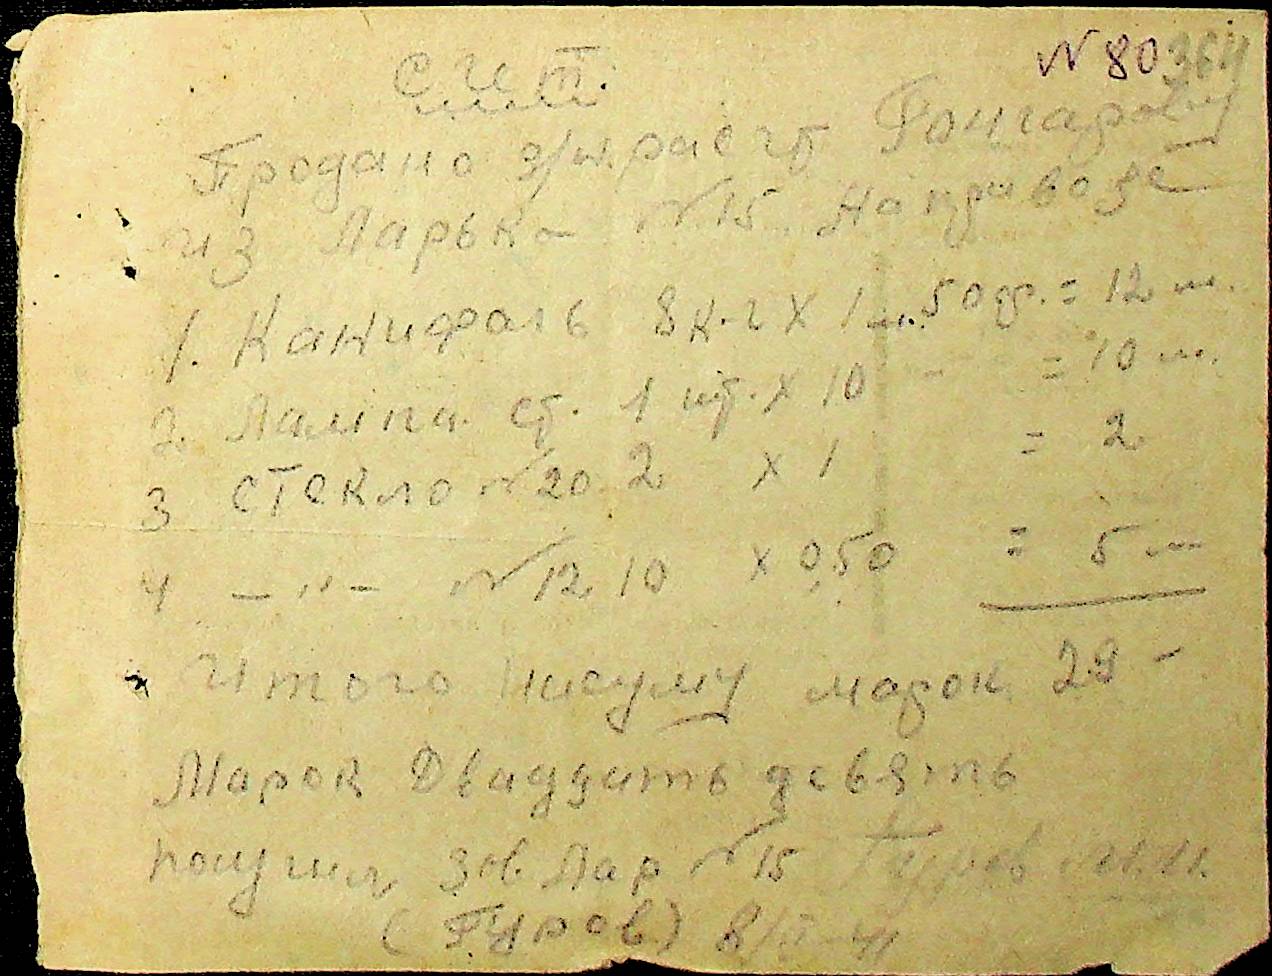 Счет. № 80 364
Продано з/м. расчт Гончарову
из Ларька № 15.
1. Канифоль 8 к-г х 1 м. 50 ф. = 12 м.
2. Лампа ст. 1 шт. х 10 - = 10 м.
3 Стекло № 20. 2 х 1 = 2
4 – " – № 12 10 х 0,50 = 5 м
Итого Нисуму марок 29 -
Марок Двадцать девять
получил Зав Лар № 15 Гуров
(Гуров)